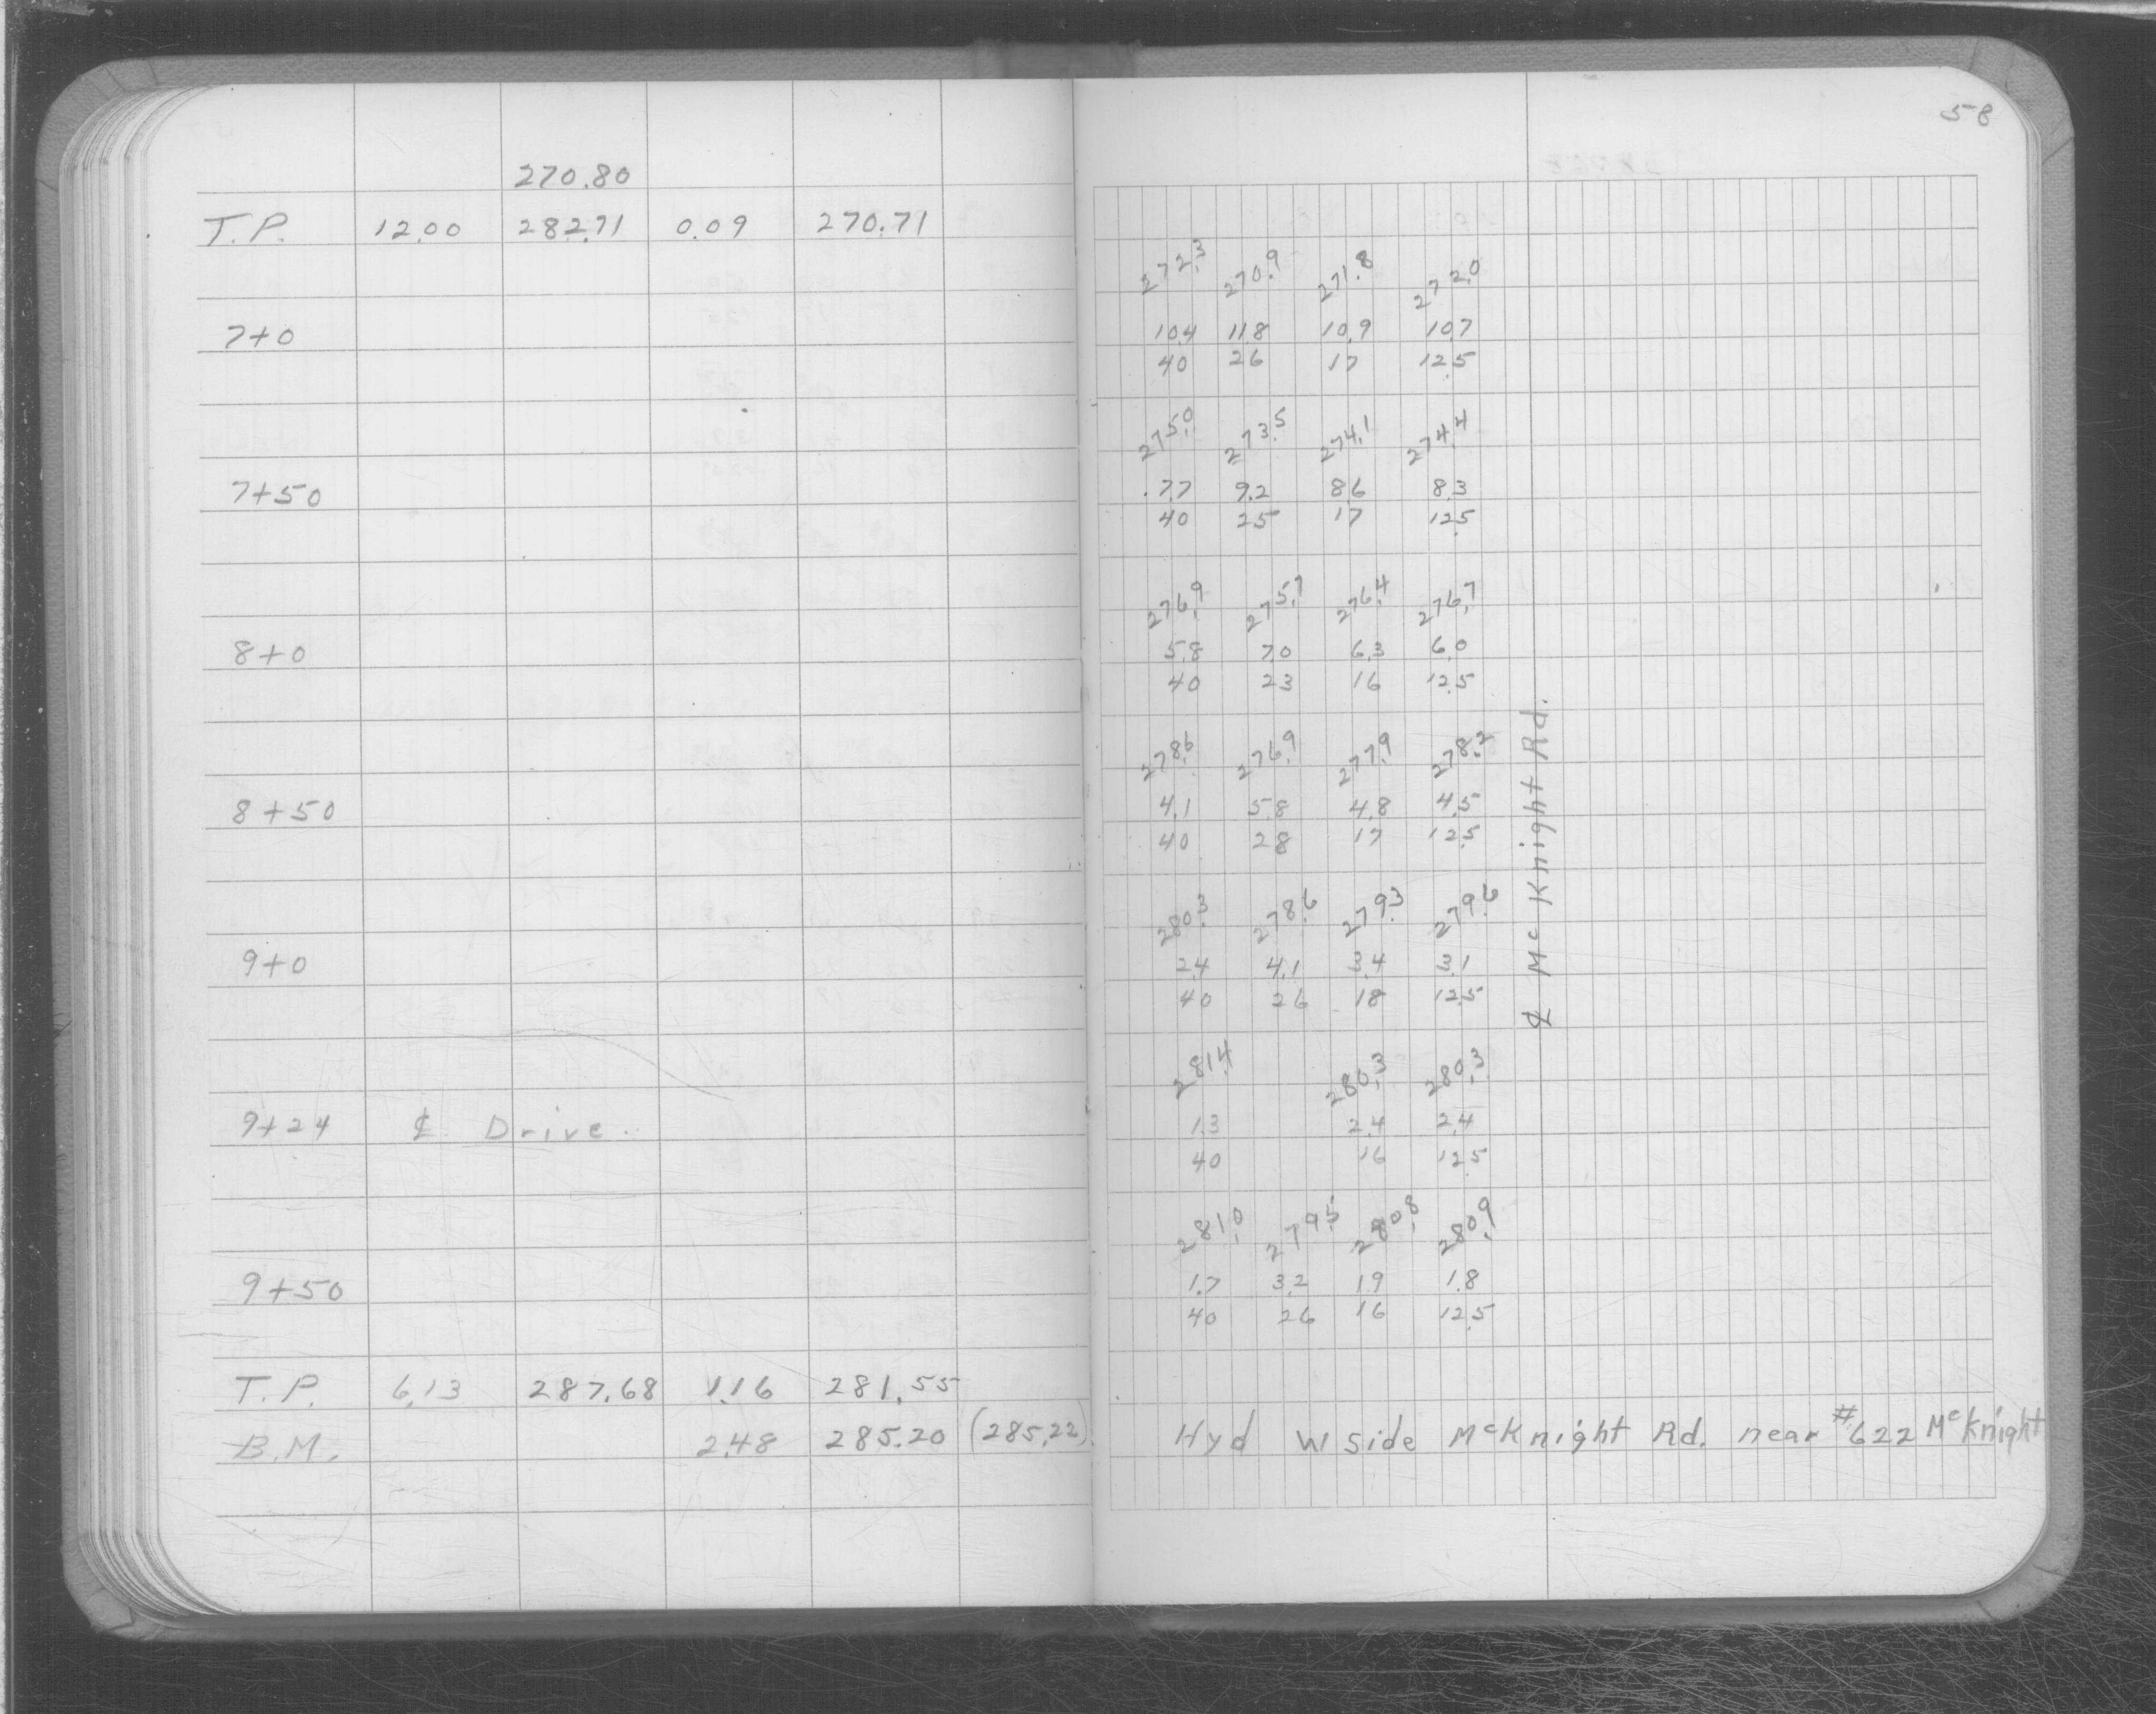 58
270.80
T.P. 12.00 282.71 0.09 270.71
272.3 270.9 271.8 272.0
7+0 10.4 11.8 10.9 10.7
40 26 17 12.5
275.0 273.5 274.1 274.4
7+50 7.7 9.2 8.6 8.3
40 25 17 12.5
276.9 275.7 276.4 276.7
8+0 5.8 7.0 6.3 6.0
40 23 16 12.5
278.6 276.9 277.9 278.2
8+50 4.1 5.8 4.8 4.5
40 28 17 12.5
280.3 278.6 279.3 279.6
9+0 2.4 4.1 3.4 3.1
40 26 18 12.5
℄ McKnight Rd.
281.4 280.3 280.3
9+24 ℄ Drive. 1.3 2.4 2.4
40 16 12.5
281.0 279.5 280.8 280.9
9+50 1.7 3.2 1.9 1.8
40 26 16 12.5
T.P. 6.13 287.68 1.16 281.55
B.M. 2.48 285.20 (285.22) Hyd W side McKnight Rd. near #622 McKnight